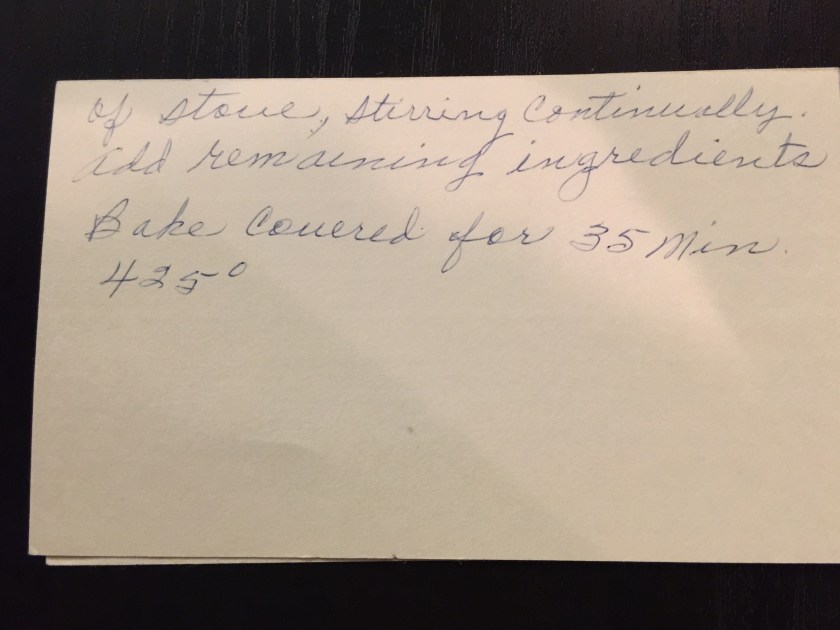 of stove, stirring Continually.
add remaining ingredients
Bake Covered for 35 Min.
425°